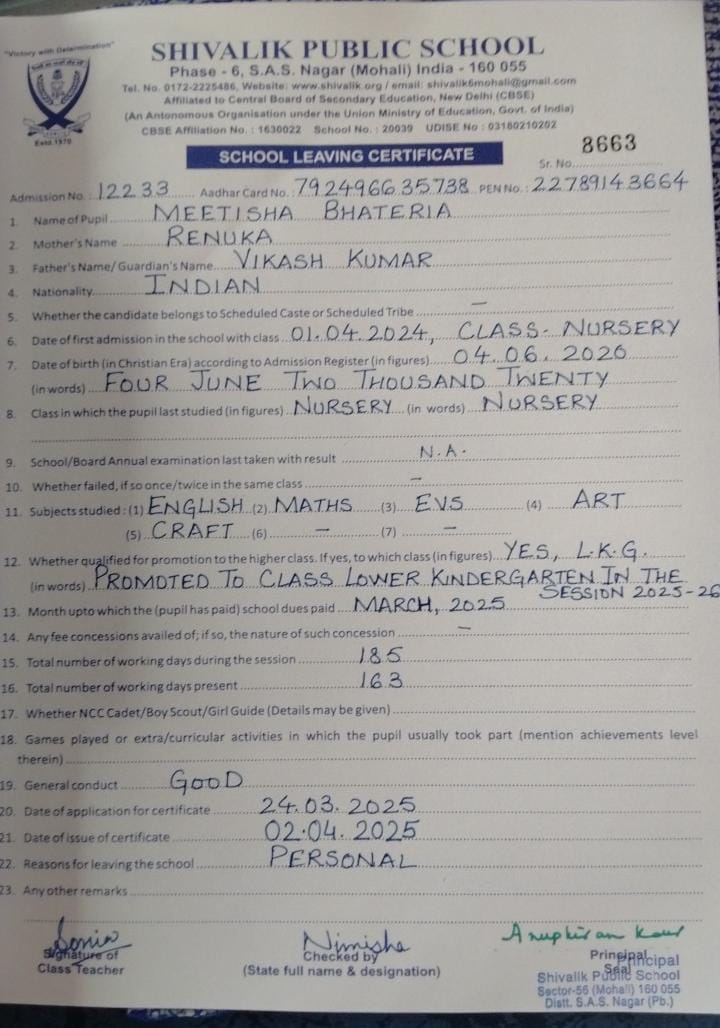 "Victory with Determination"
Estd.1970
SHIVALIK PUBLIC SCHOOL
Phase - 6, S.A.S. Nagar (Mohali) India - 160 055
Tel. No. 0172-2225486, Website: www.shivalik.org / email: shivalik6mohali@gmail.com
Affiliated to Central Board of Secondary Education, New Delhi (CBSE)
(An Antonomous Organisation under the Union Ministry of Education, Govt. of India)
CBSE Affiliation No. : 1630022 School No. : 20039 UDISE No : 03160210202
SCHOOL LEAVING CERTIFICATE
Sr. No. 8663
Admission No. : 12233 Aadhar Card No. : 792496635738 PEN No. : 22789143664
1. Name of Pupil MEETISHA BHATERIA
2. Mother's Name RENUKA
3. Father's Name/ Guardian's Name VIKASH KUMAR
4. Nationality INDIAN
5. Whether the candidate belongs to Scheduled Caste or Scheduled Tribe —
6. Date of first admission in the school with class 01.04.2024, CLASS- NURSERY
7. Date of birth (in Christian Era) according to Admission Register (in figures) 04.06.2020
(in words) FOUR JUNE TWO THOUSAND TWENTY
8. Class in which the pupil last studied (in figures) NURSERY (in words) NURSERY
9. School/Board Annual examination last taken with result N.A.
10. Whether failed, if so once/twice in the same class —
11. Subjects studied : (1) ENGLISH (2) MATHS (3) EVS (4) ART
(5) CRAFT (6) — (7) —
12. Whether qualified for promotion to the higher class. If yes, to which class (in figures) YES, L.K.G.
(in words) PROMOTED TO CLASS LOWER KINDERGARTEN IN THE
SESSION 2025-26
13. Month upto which the (pupil has paid) school dues paid MARCH, 2025
14. Any fee concessions availed of; if so, the nature of such concession —
15. Total number of working days during the session 185
16. Total number of working days present 163
17. Whether NCC Cadet/Boy Scout/Girl Guide (Details may be given)
18. Games played or extra/curricular activities in which the pupil usually took part (mention achievements level
therein)
19. General conduct GOOD
20. Date of application for certificate 24.03.2025
21. Date of issue of certificate 02.04.2025
22. Reasons for leaving the school PERSONAL
23. Any other remarks
Sonia Nimisha Anupkiran Kaur
Signature of Checked by Principal
Class Teacher (State full name & designation) Seal
Principal
Shivalik Public School
Sector-56 (Mohali) 160 055
Distt. S.A.S. Nagar (Pb.)